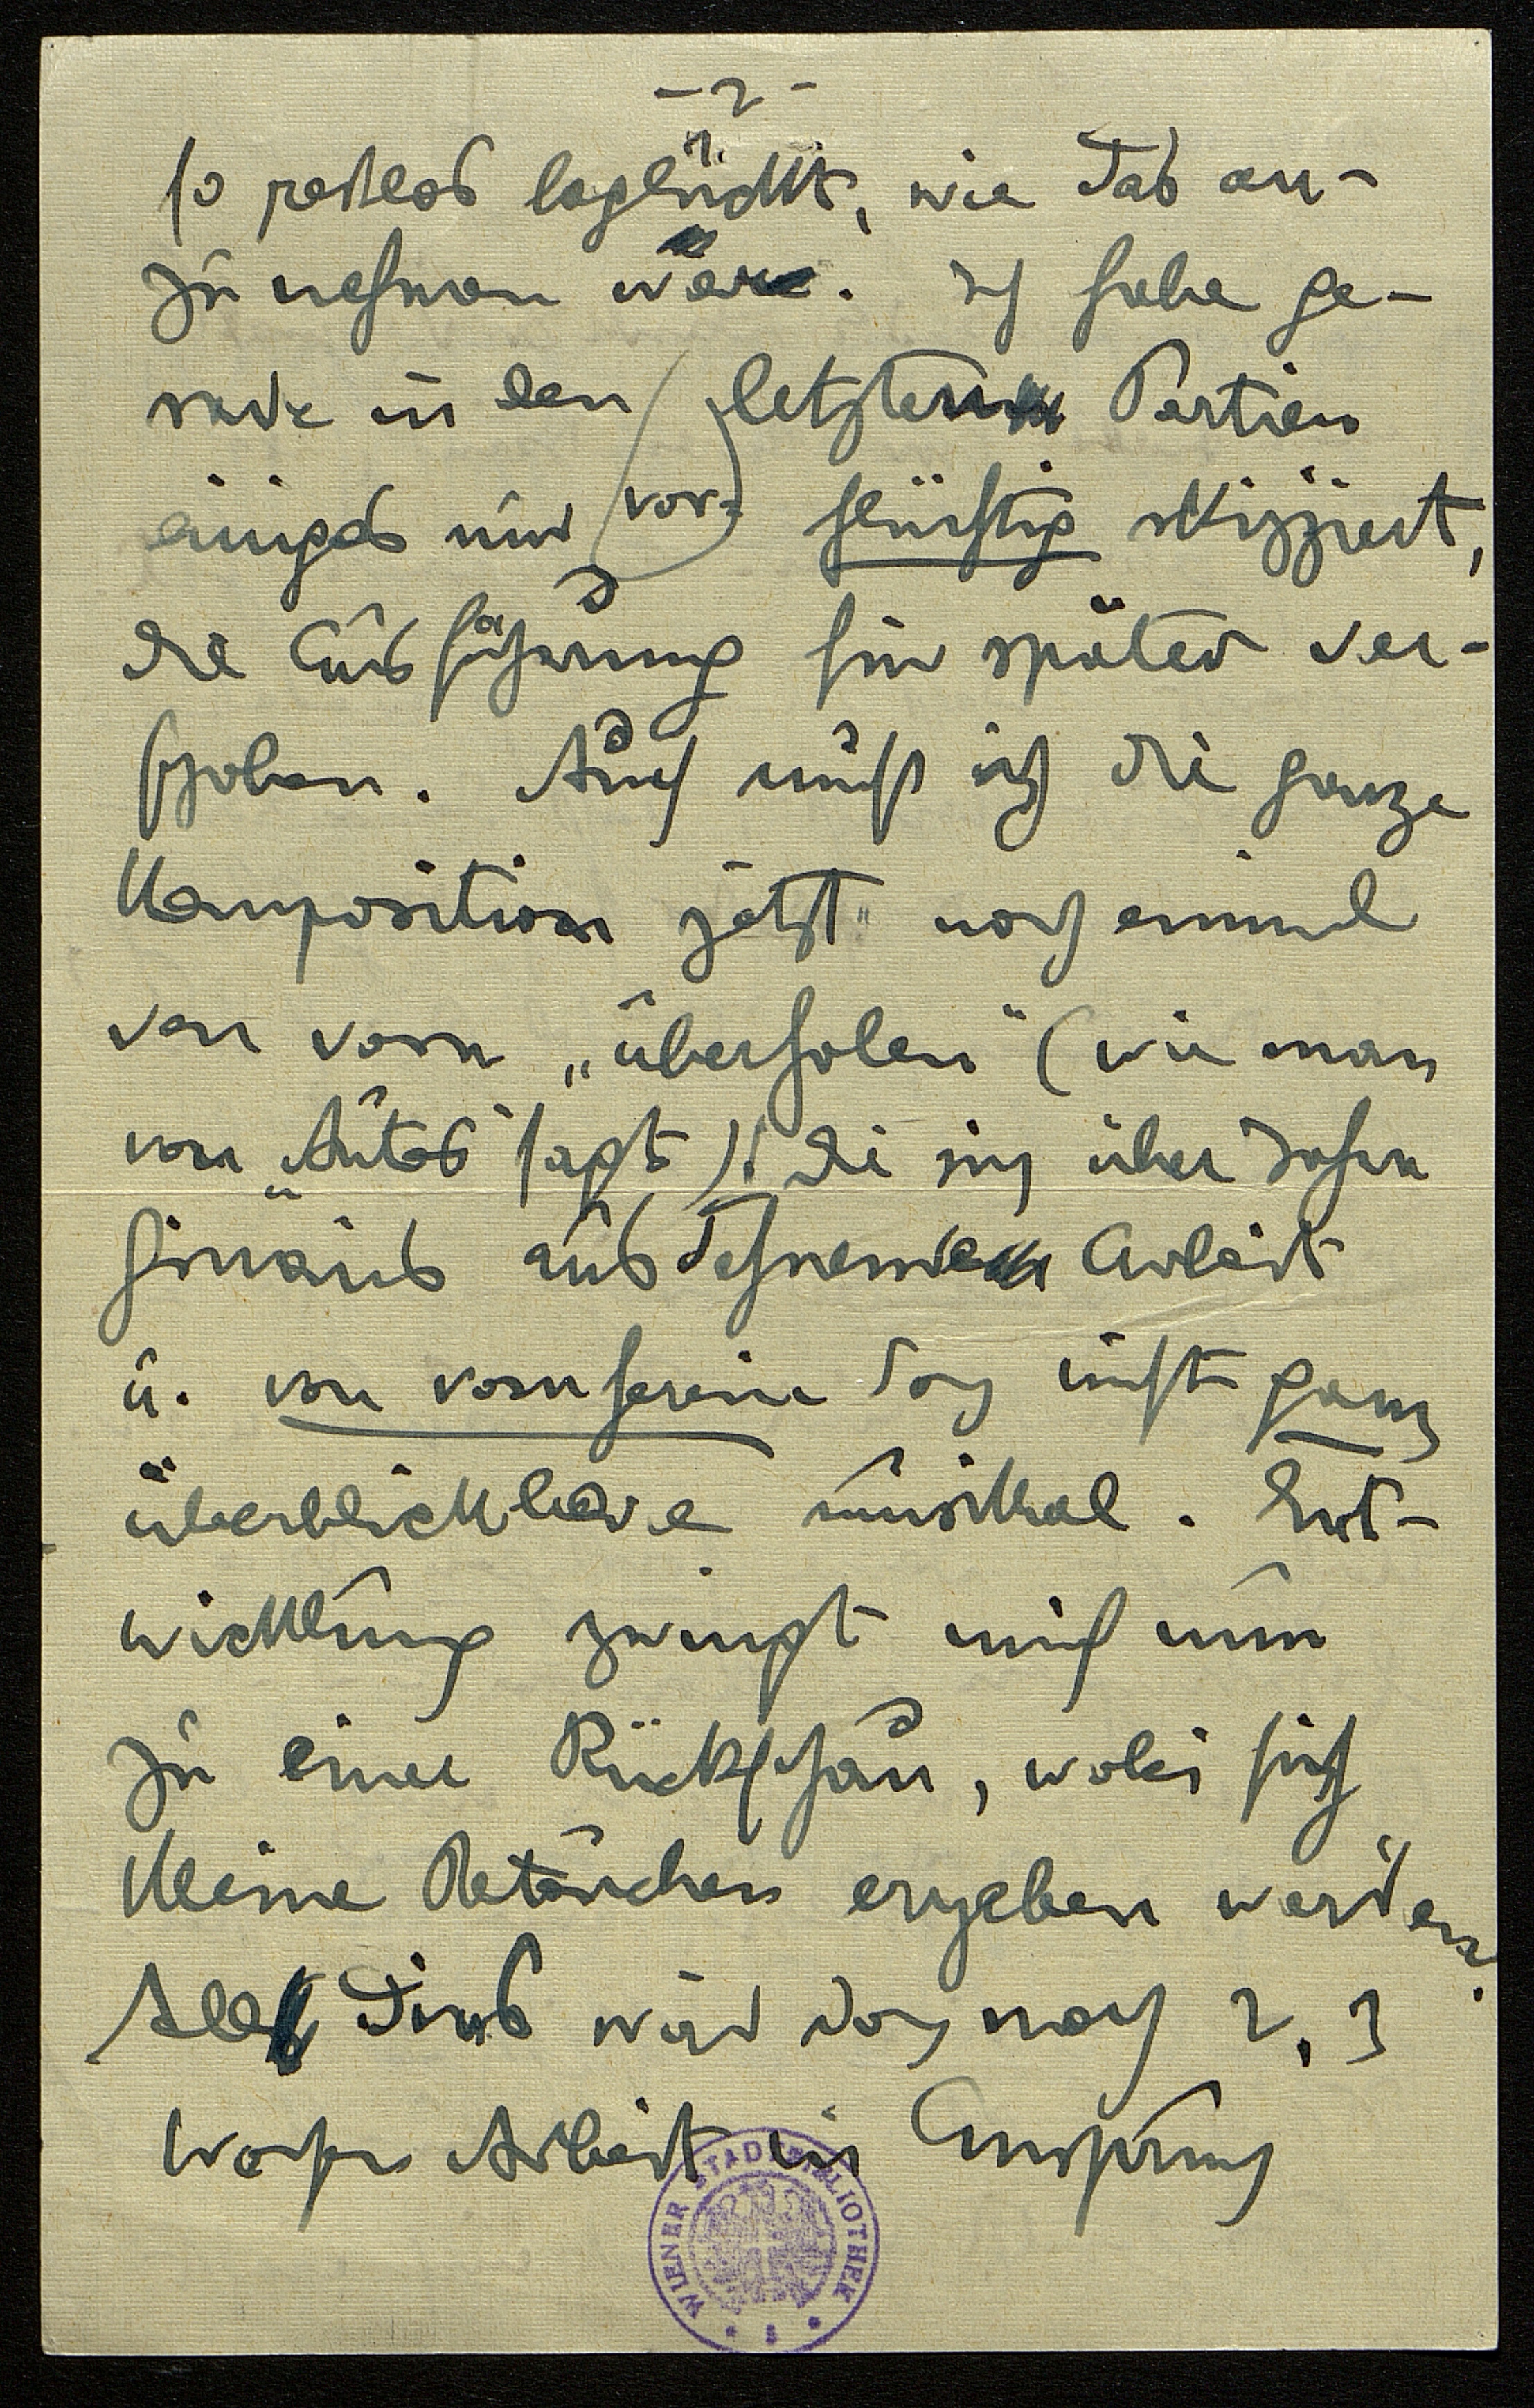 - 2 -
so restlos beglückt, wie das an-
zunehmen wäre. Ich habe ge-
rade in den letzten Partien
einiges nur (vor-) flüchtig skizziert,
die Ausführung für später ver-
schoben. Auch muß ich die ganze
Komposition jetzt noch einmal
von vorn „überholen" (wie man
von „Autos" sagt)! Die sich über Jahre
hinaus ausdehnende Arbeit
u. von vornherein doch nicht ganz
überblickbare musikal. Ent-
wicklung zwingt mich nun
zu einer Rückschau, wobei sich
kleine Retouchen ergeben werden.
All dies wird doch noch 2, 3
Wochen Arbeit in Anspruch
WIENER STADTBIBLIOTHEK